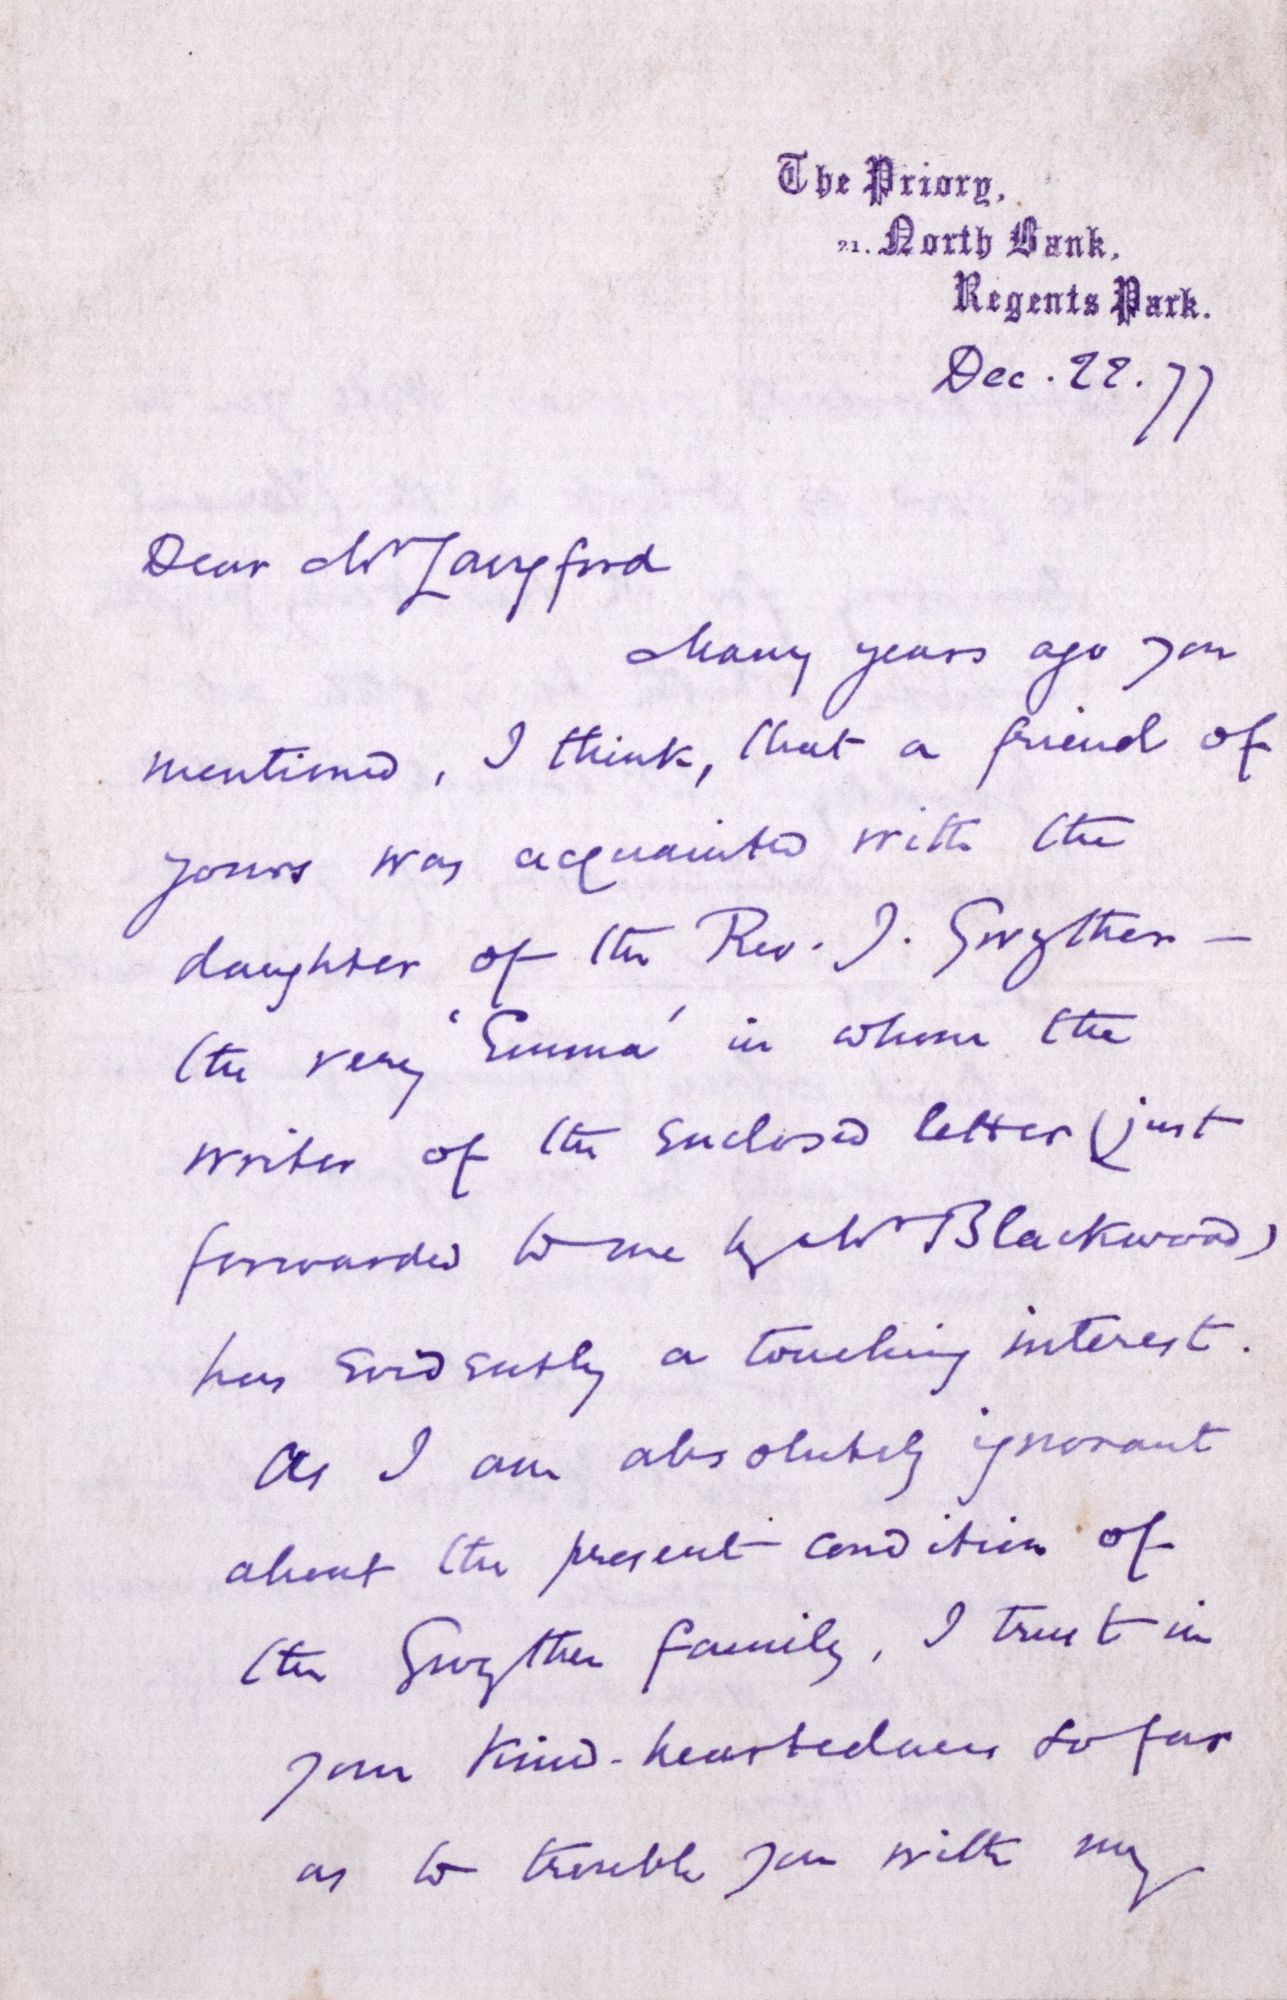 The Priory,
21. North Bank,
Regents Park.
Dec. 22. 77
Dear Mr Langford
Many years ago you
mentioned, I think, that a friend of
yours was acquainted with the
daughter of the Rev. J. Gwyther —
the very 'Emma' in whom the
writer of the enclosed letter (just
forwarded to me by Mr Blackwood)
has evidently a touching interest.
As I am absolutely ignorant
about the present condition of
the Gwyther family, I trust in
your kind-heartedness so far
as to trouble you with my